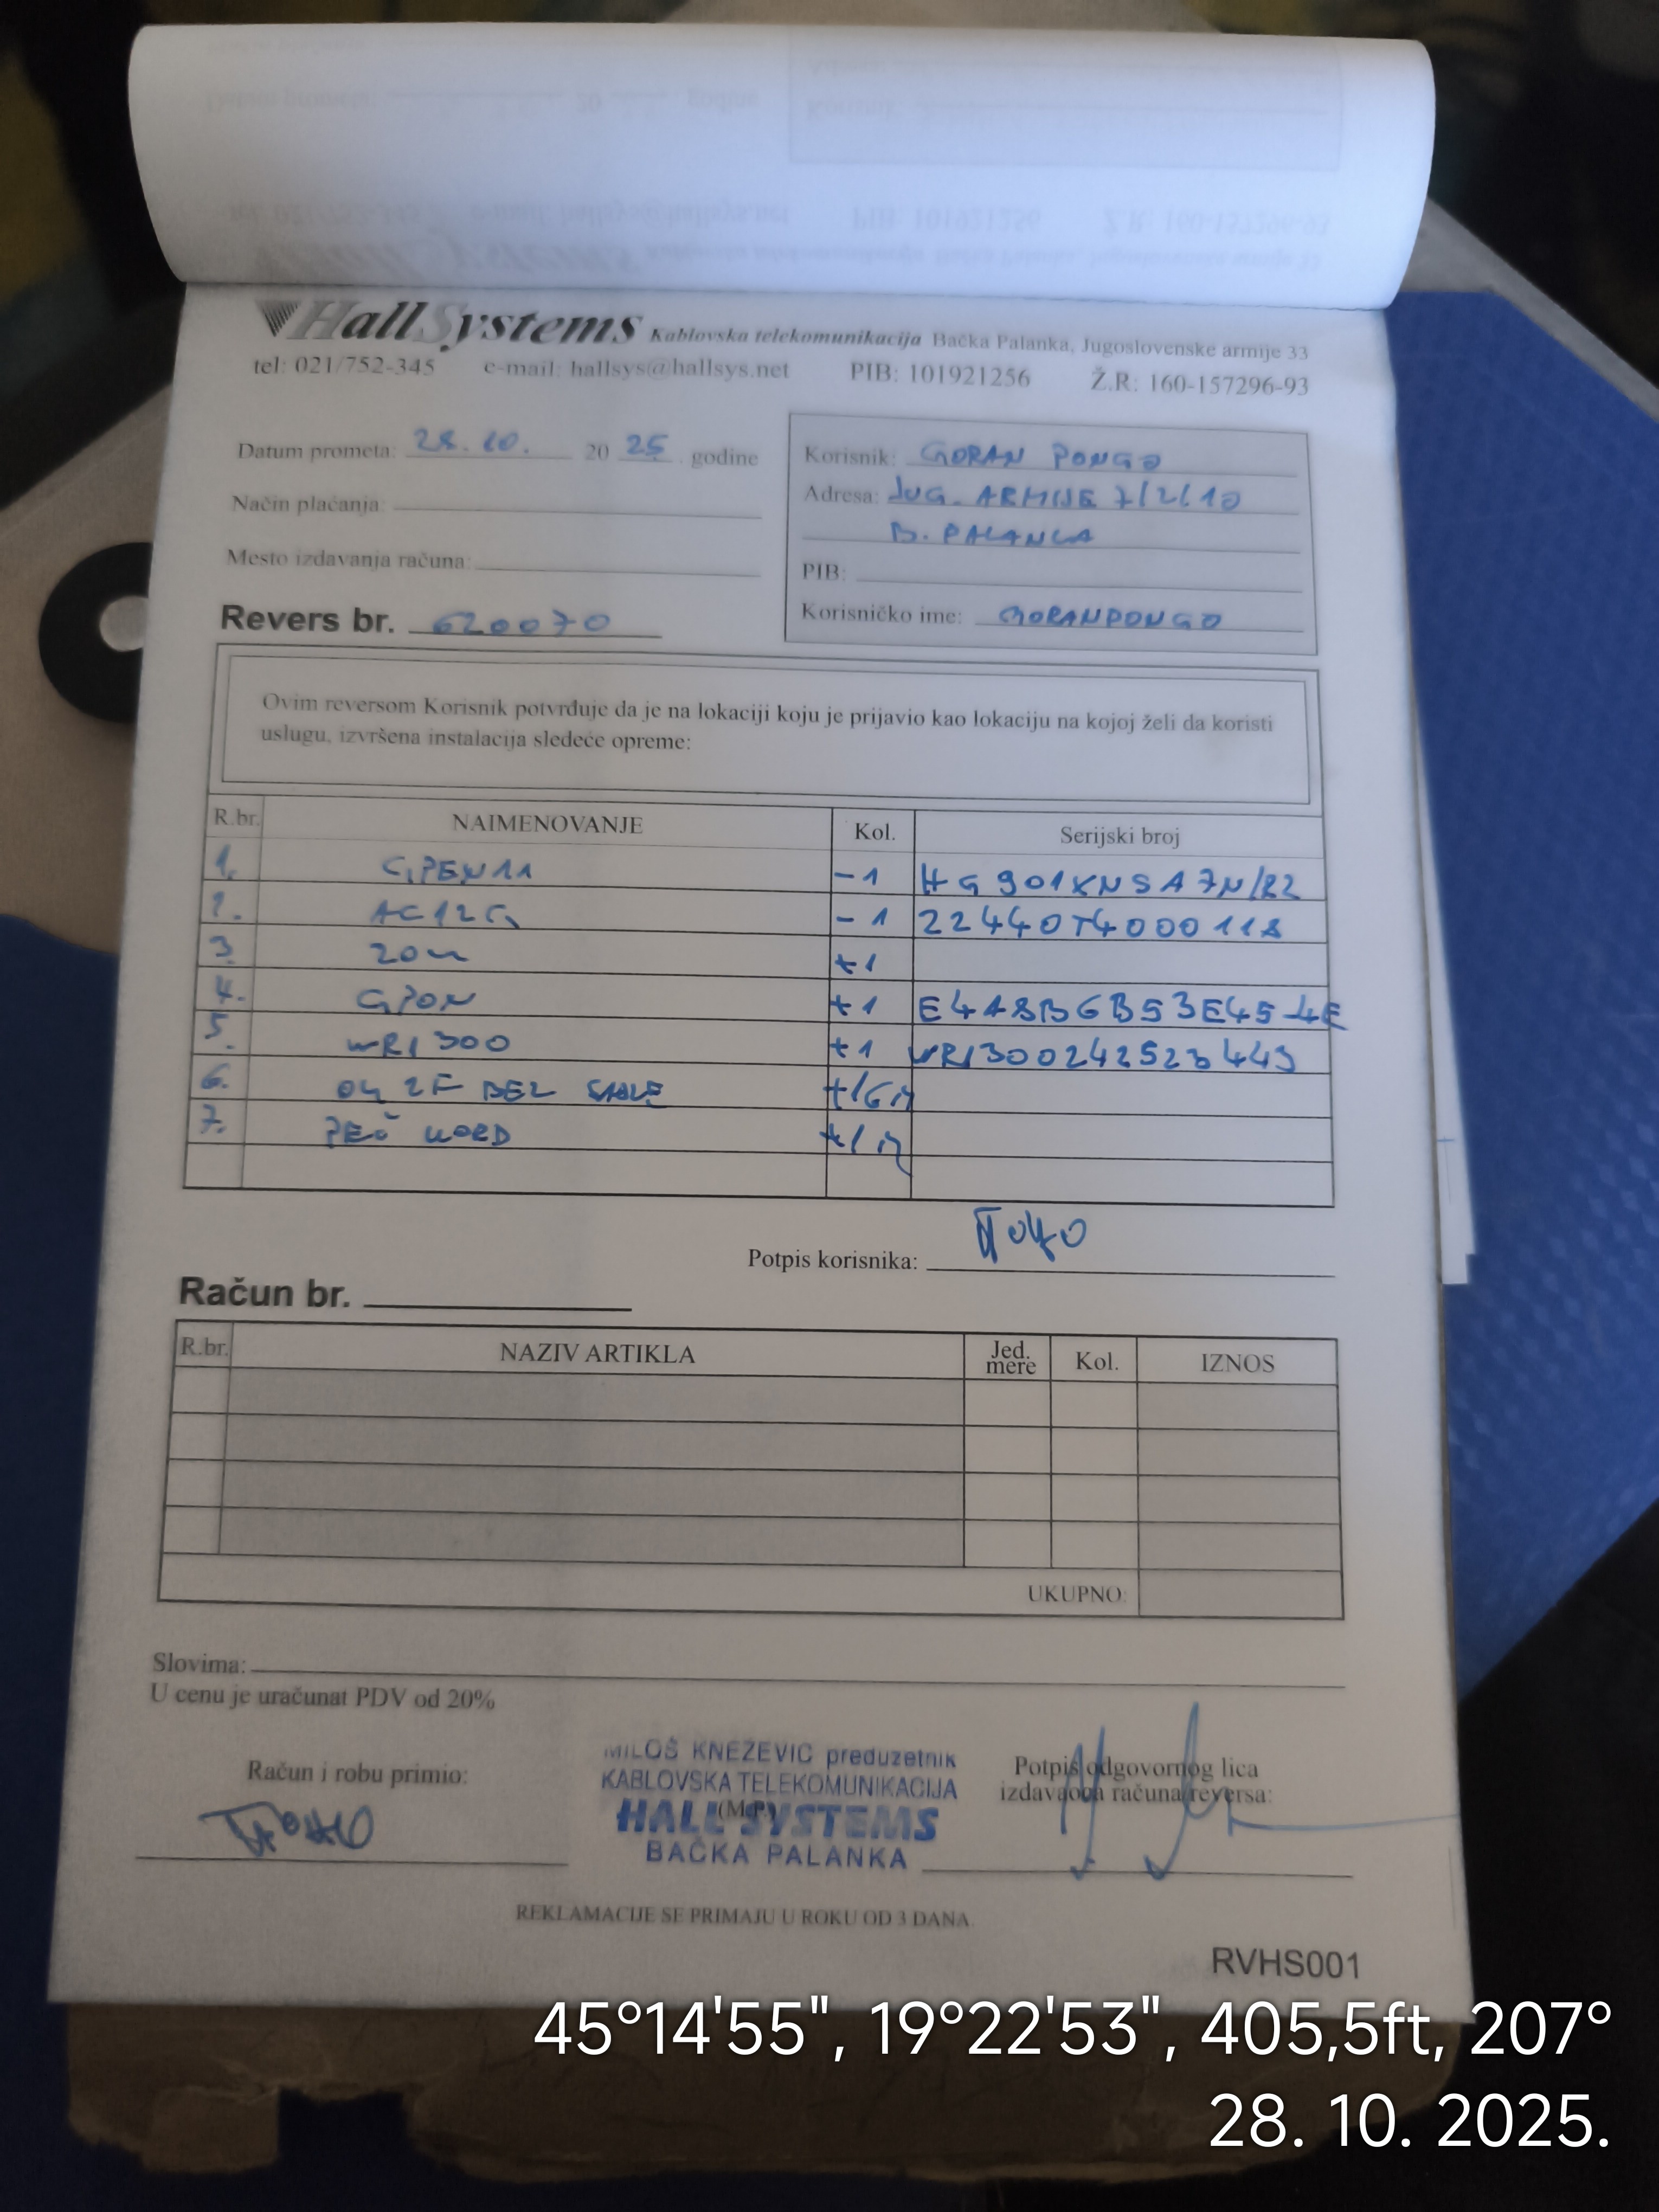 HallSystems Kablovska telekomunikacija Bačka Palanka, Jugoslovenske armije 33
tel: 021/752-345 e-mail: hallsys@hallsys.net PIB: 101921256 Ž.R: 160-157296-93
Datum prometa: 28.10. 20 25. godine
Način plaćanja:
Mesto izdavanja računa:
Revers br. 620070
Korisnik: GORAN PONGO
Adresa: JUG. ARMIJE 7/2/10
B. PALANKA
PIB:
Korisničko ime: GORANPONGO
Ovim reversom Korisnik potvrđuje da je na lokaciji koju je prijavio kao lokaciju na kojoj želi da koristi
uslugu, izvršena instalacija sledeće opreme:
R.br. NAIMENOVANJE Kol. Serijski broj
1. -1
2. AC12G -1 22440T4000118
3. 20m +1
4. GPON +1 E4A8B6B53E454E
5. WR1300 +1 WR1300242523443
6. 2F BEZ
7. KORD
Potpis korisnika:
Račun br.
R.br. NAZIV ARTIKLA Jed. mere Kol. IZNOS
UKUPNO:
Slovima:
U cenu je uračunat PDV od 20%
Račun i robu primio:
MILOŠ KNEŽEVIĆ preduzetnik
KABLOVSKA TELEKOMUNIKACIJA
(M.P.)
HALL SYSTEMS
BAČKA PALANKA
Potpis odgovornog lica
izdavaoca računa/reversa:
REKLAMACIJE SE PRIMAJU U ROKU OD 3 DANA.
RVHS001
45°14'55", 19°22'53", 405,5ft, 207°
28. 10. 2025.